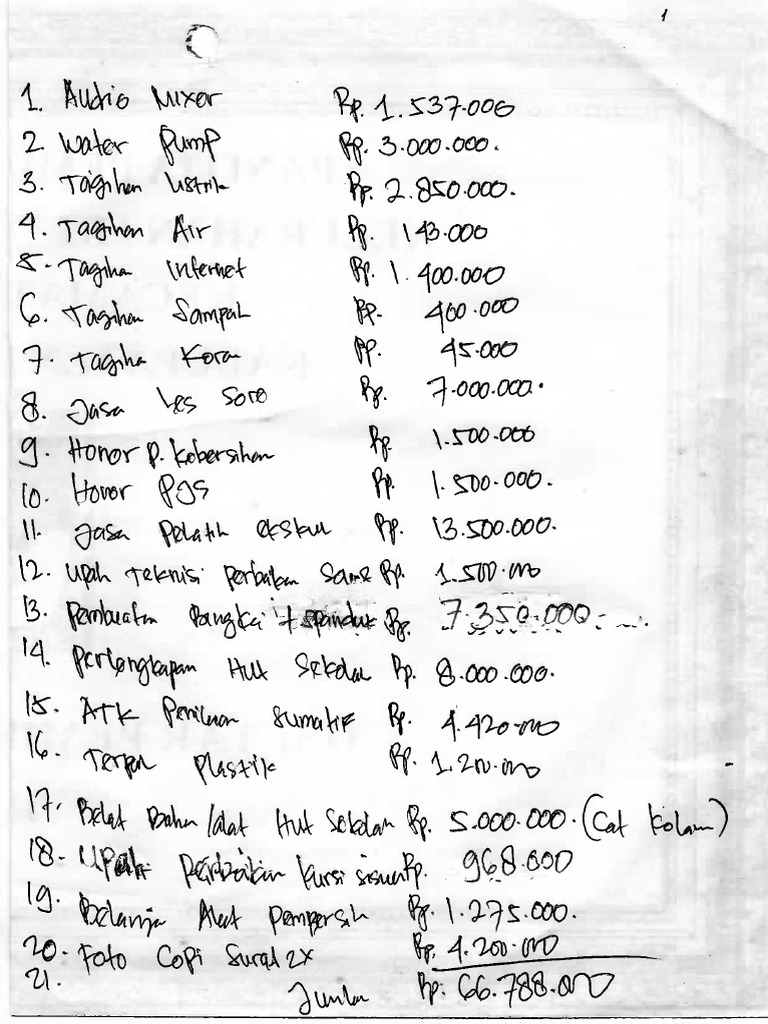 1
1. Audio Mixer Rp. 1.537.000
2. Water Pump Rp. 3.000.000.
3. Tagihan Listrik Rp. 2.850.000.
4. Tagihan Air Rp. 143.000
5. Tagiha Internet Rp. 1.400.000
6. Tagihan Sampah Rp. 400.000
7. Tagiha Koran Rp. 45.000
8. Jasa Les Sore Rp. 7.000.000.
9. Honor P. Kebersihan Rp. 1.500.000
10. Honor PJS Rp. 1.500.000.
11. Jasa Pelatih ekskul Rp. 13.500.000.
12. Upah Teknisi perbaikan Rp. 1.500.000
13. Pembuatan Bangkai + spanduk Rp. 7.350.000
14. Perlengkapan Hut Sekolah Rp. 8.000.000.
15. ATK Penilaian Sumatif Rp. 4.420.000
16. Terpal Plastik Rp. 1.200.000
17. Belat Bahan/alat Hut Sekolah Rp. 5.000.000. (Cat Kolam)
18. Upah perbaikan kursi siswa Rp. 968.000
19. Belanja Alat Pempersih Rp. 1.275.000.
20. Foto Copi Surat2x Rp. 4.200.000
21.
Jumlah Rp. 66.788.000